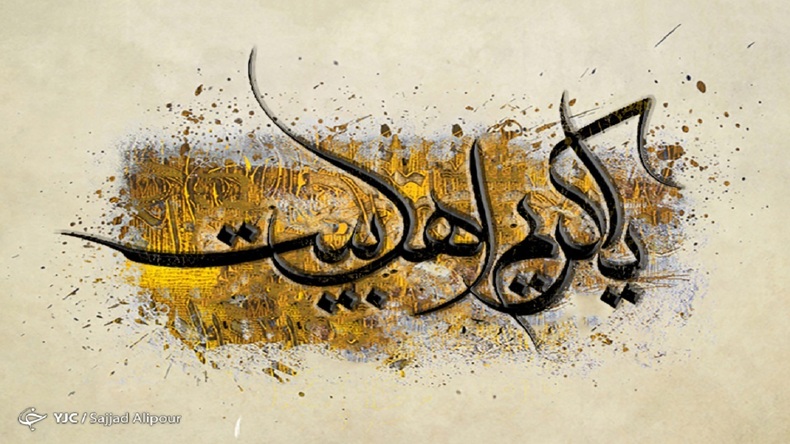 یا کریم اهل بیت
YJC / Sajjad Alipour